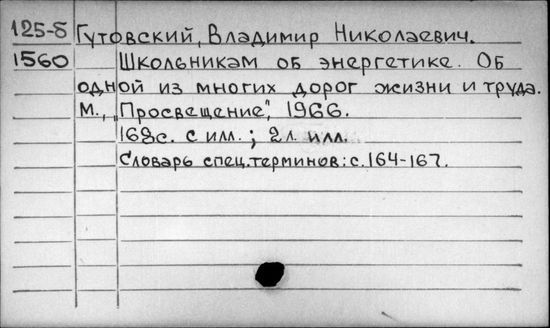 125-8 Гутовский, Владимир Николаевич.
1560 Школьникам об энергетике. Об
одной из многих дорог жизни и труда.
М., „Просвещение", 1966.
168с. с илл.; 2л. илл.
Словарь спец.терминов: с.164-167.